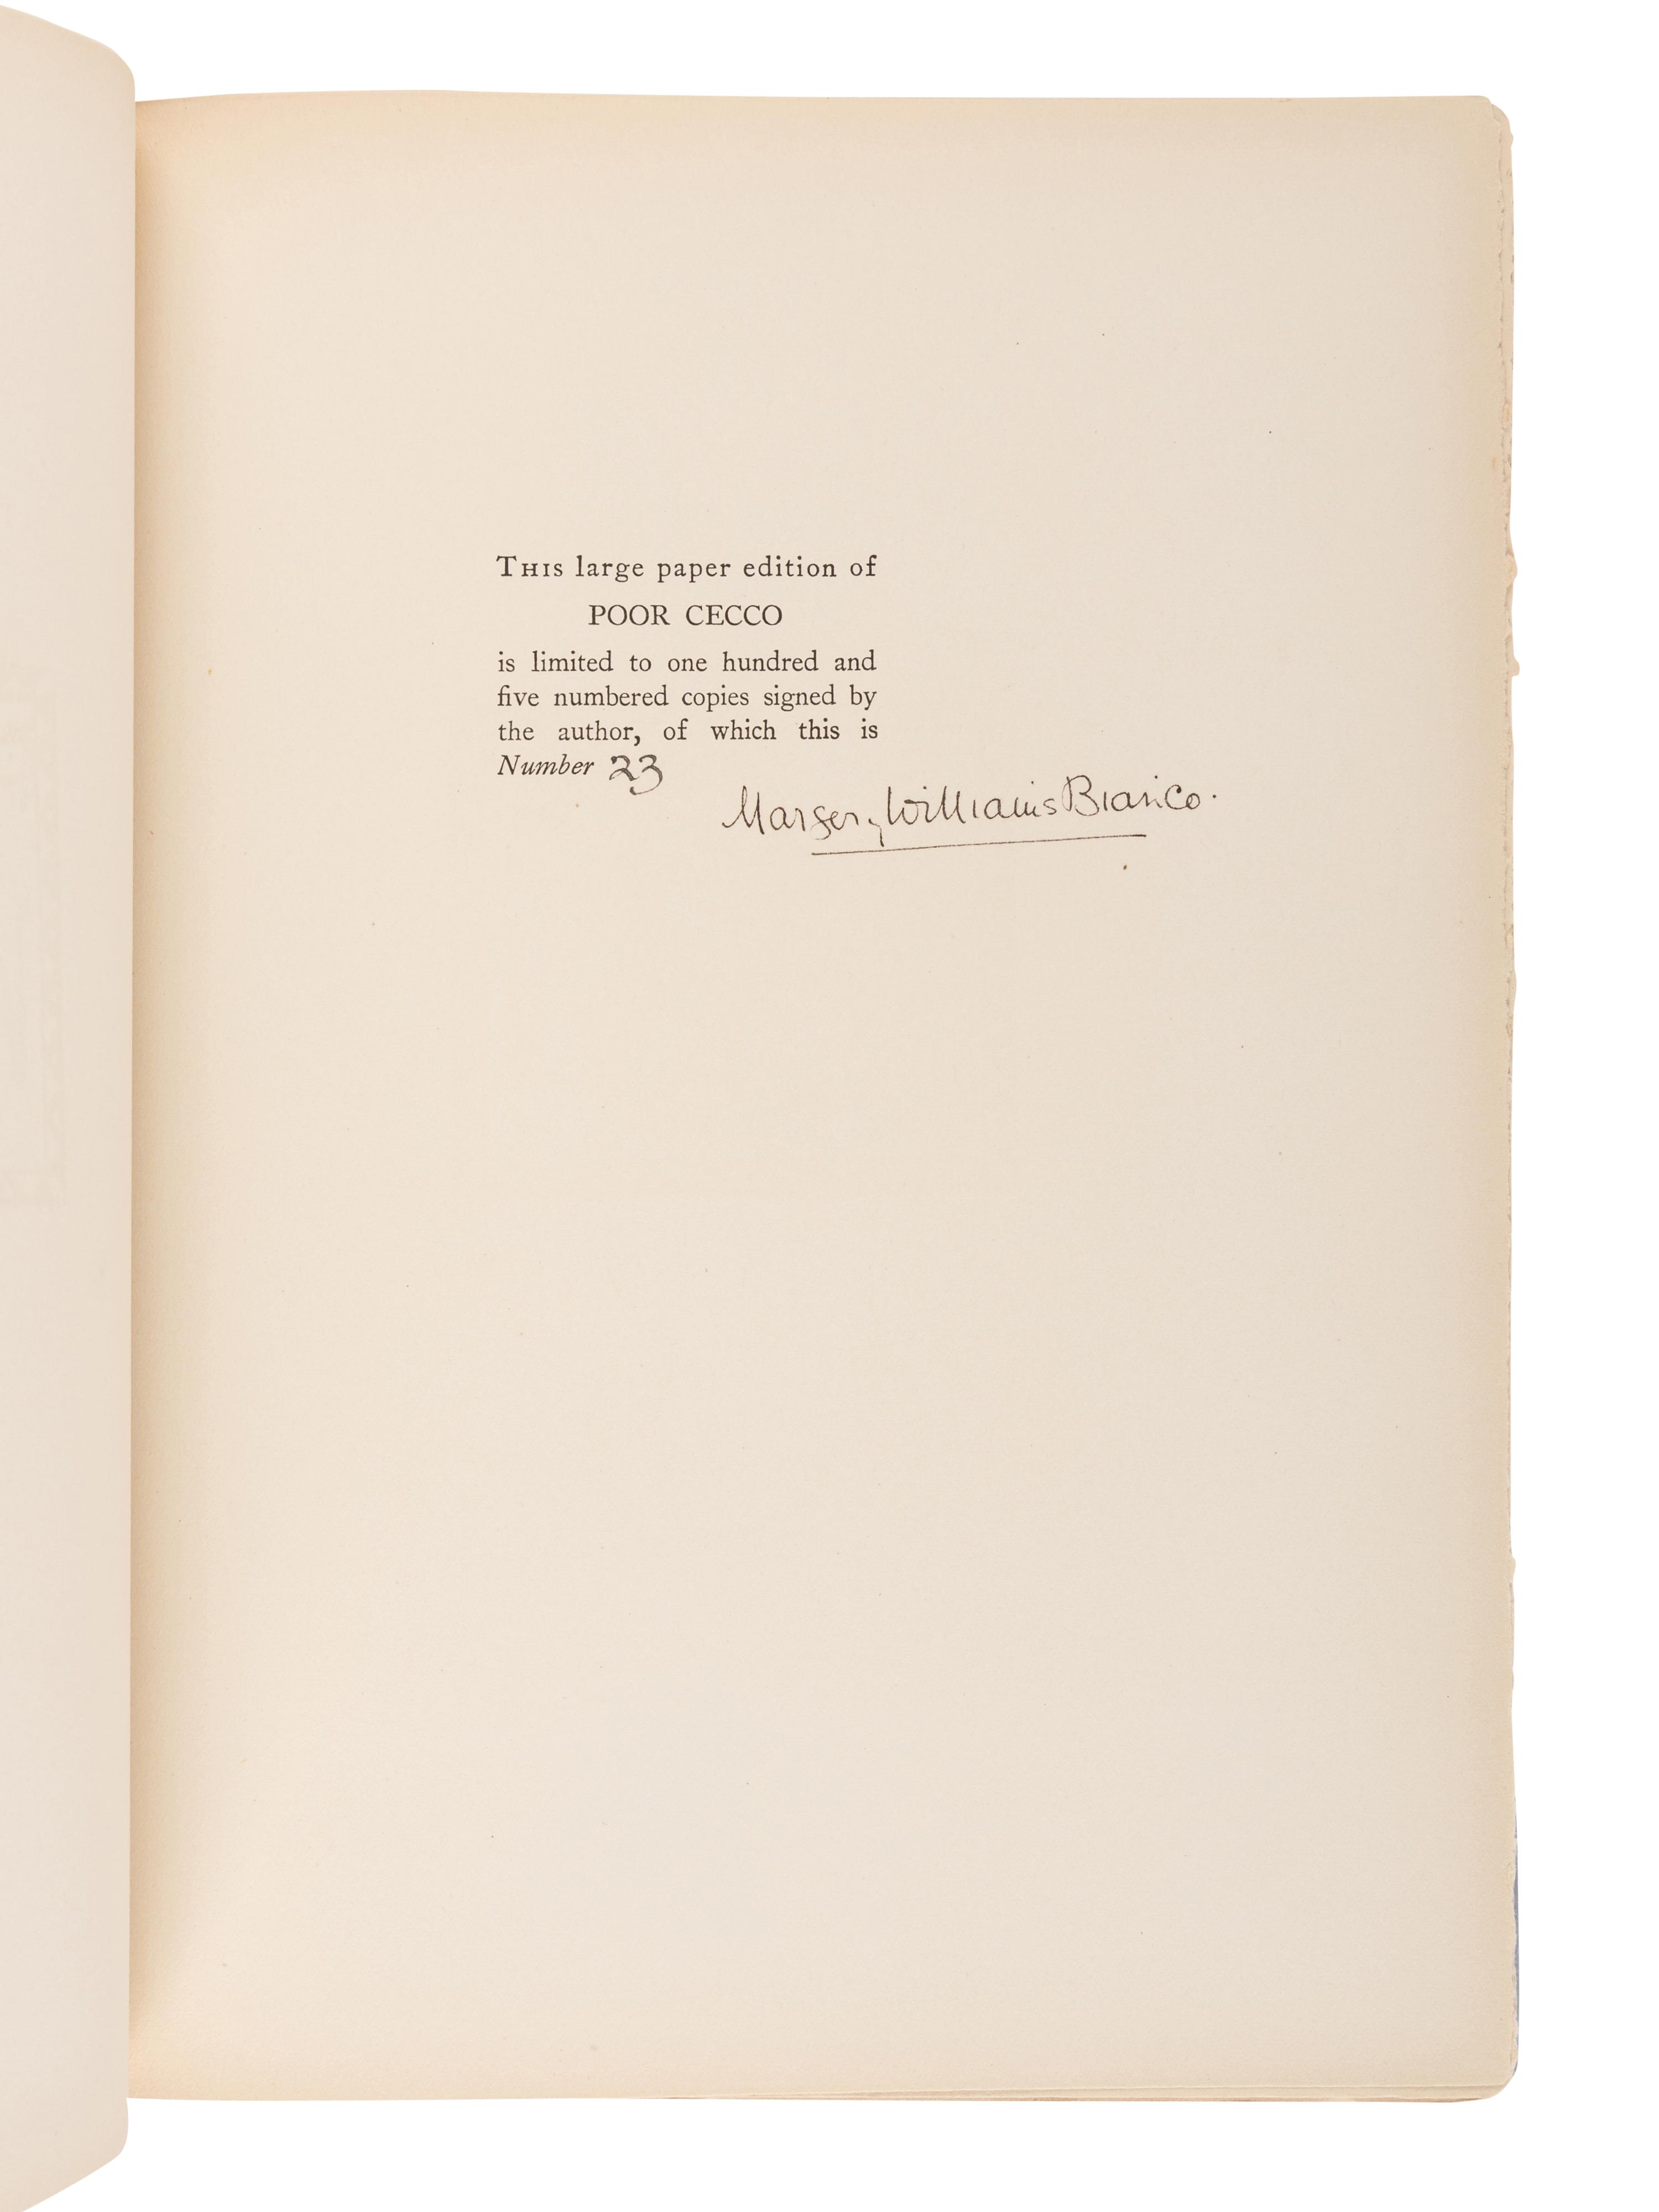 THIS large paper edition of
POOR CECCO
is limited to one hundred and
five numbered copies signed by
the author, of which this is
Number 23
Margery Williams Bianco.